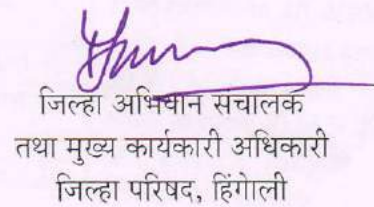 जिल्हा अभियान संचालक
तथा मुख्य कार्यकारी अधिकारी
जिल्हा परिषद, हिंगोली